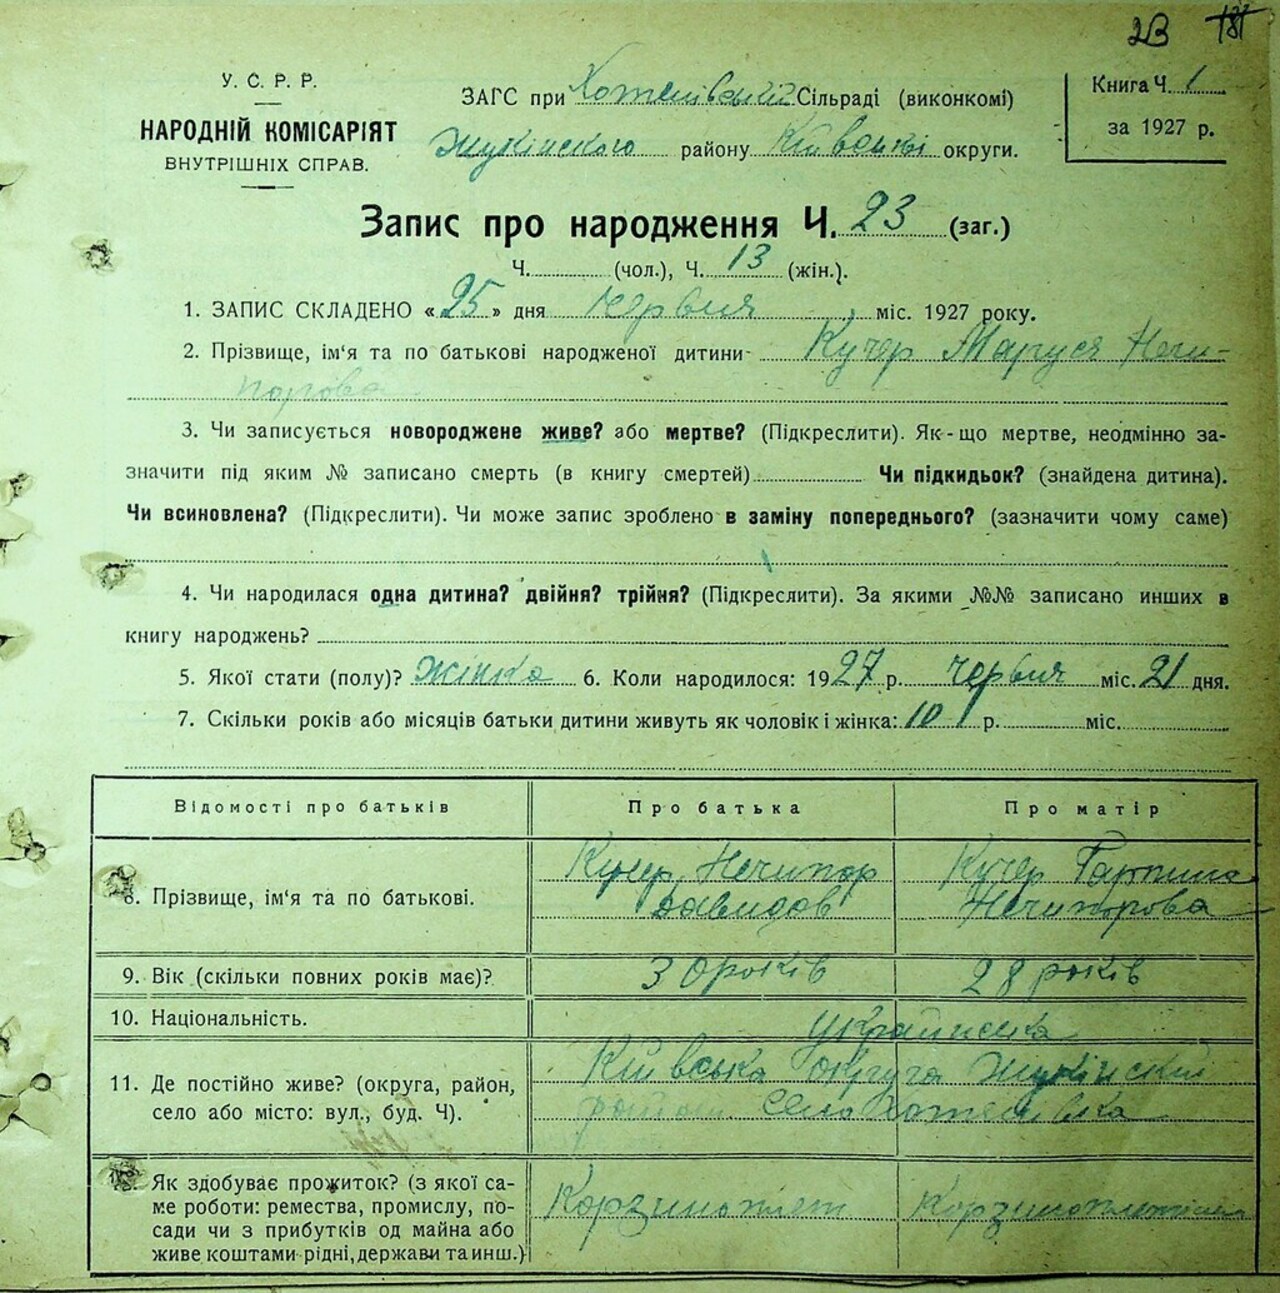 23 181
У. С. Р. Р.
НАРОДНІЙ КОМІСАРІЯТ
ВНУТРІШНІХ СПРАВ.
ЗАГС при Хотянівській Сільраді (виконкомі)
Жукінского району Київської округи.
Книга Ч. 1
за 1927 р.
Запис про народження Ч. 23 (заг.)
Ч. (чол.), Ч. 13 (жін.).
1. ЗАПИС СКЛАДЕНО «25» дня червня міс. 1927 року.
2. Прізвище, ім'я та по батькові народженої дитини Кучер Маруся Нечи-
порова
3. Чи записується новороджене живе? або мертве? (Підкреслити). Як-що мертве, неодмінно за-
значити під яким № записано смерть (в книгу смертей) Чи підкидьок? (знайдена дитина).
Чи всиновлена? (Підкреслити). Чи може запис зроблено в заміну попереднього? (зазначити чому саме)
4. Чи народилася одна дитина? двійня? трійня? (Підкреслити). За якими №№ записано инших в
книгу народжень?
5. Якої стати (полу)? Жінка 6. Коли народилося: 1927 р. червня міс. 21 дня.
7. Скільки років або місяців батьки дитини живуть як чоловік і жінка: 10 р. міс.
Відомості про батьків Про батька Про матір
8. Прізвище, ім'я та по батькові.
Кучер Нечипор
Давидов
Кучер Гарпина
Нечипорова
9. Вік (скільки повних років має)? 30 років 28 років
10. Національність. Украинска
11. Де постійно живе? (округа, район,
село або місто: вул., буд. Ч).
Київська округа Жукінский
район село Хотянівка
12. Як здобуває прожиток? (з якої са-
ме роботи: ремества, промислу, по-
сади чи з прибутків од майна або
живе коштами рідні, держави та инш.)
Корзиноплет